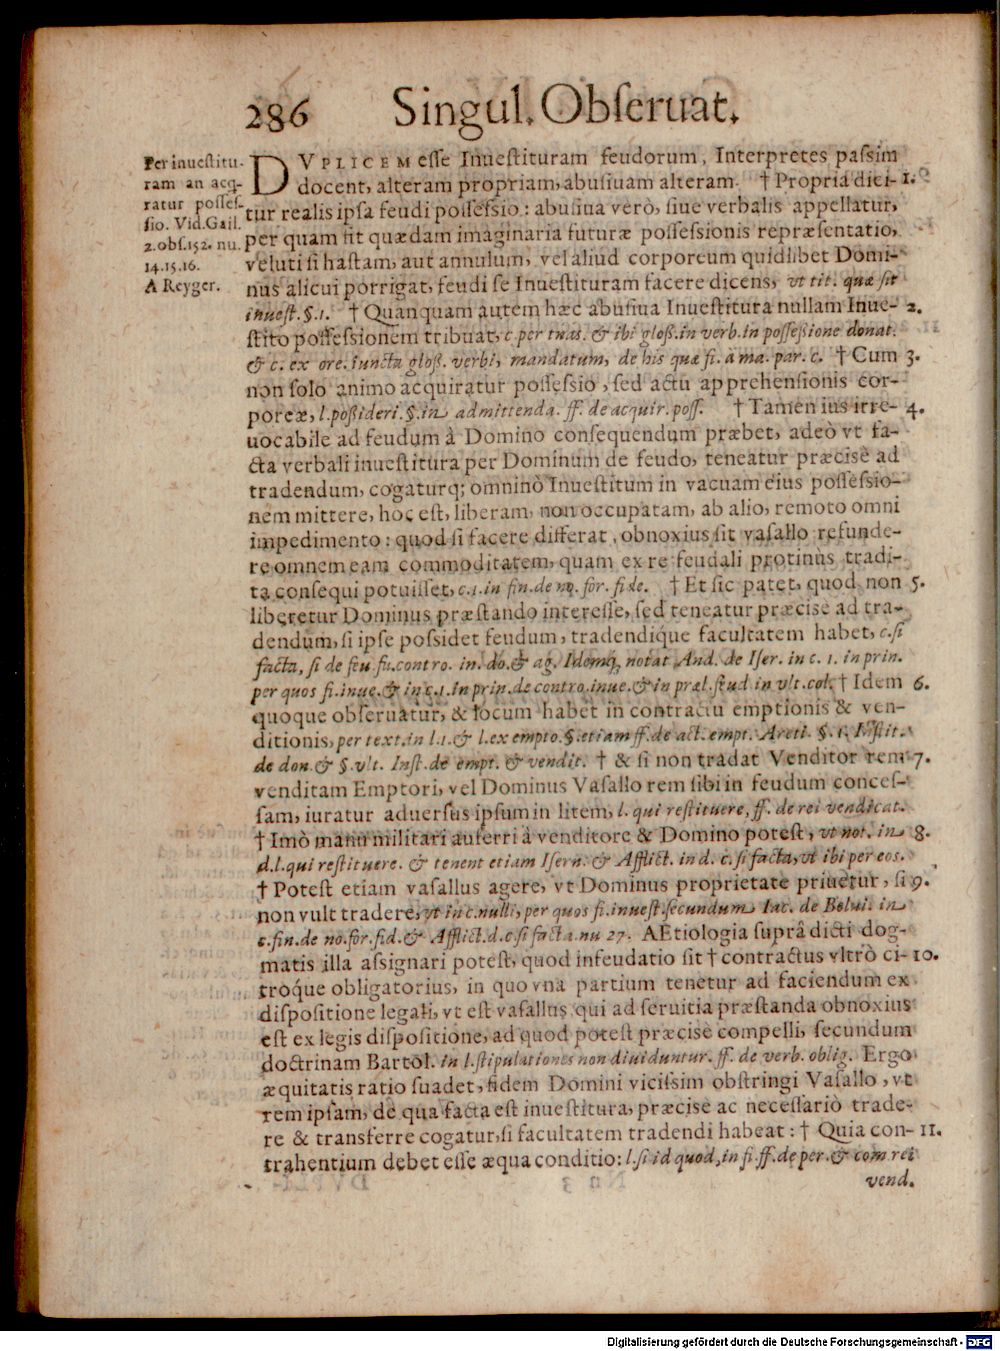 286 Singul. Obſeruat.
Per inueſtitu-
ram an acq-
ratur poſſeſ-
ſio. Vid. Gail.
2. obſ. 152. nu.
14. 15. 16.
A Reyger.
DVPLICEM eſſe Inueſtituram feudorum, Interpretes paſsim
docent, alteram propriam, abuſiuam alteram. † Propria dici- 1.
tur realis ipſa feudi poſſeſsio: abuſiua verò, ſiue verbalis appellatur,
per quam fit quædam imaginaria futuræ poſſeſsionis repræſentatio,
veluti ſi haſtam, aut annulum, vel aliud corporeum quidlibet Domi-
nus alicui porrigat, feudi ſe Inueſtituram facere dicens, vt tit. quæ ſit
inueſt. §. 1. † Quanquam autem hæc abuſiua Inueſtitura nullam Inue- 2.
ſtito poſſeſsionem tribuat, c. per tuas. & ibi gloß. in verb. in poſſeßione donat.
& c. ex ore. iuncta gloß. verbi, mandatum, de his quæ fi. à ma. par. c. † Cum 3.
non ſolo animo acquiratur poſſeſsio, ſed actu apprehenſionis cor-
poreæ, l. poßideri. §. in admittenda. ff. de acquir. poſſ. † Tamen ius irre- 4.
uocabile ad feudum à Domino conſequendum præbet, adeò vt fa-
cta verbali inueſtitura per Dominum de feudo, teneatur præcisè ad
tradendum, cogaturq; omninò Inueſtitum in vacuam eius poſſeſsio-
nem mittere, hoc eſt, liberam, non occupatam, ab alio, remoto omni
impedimento: quod ſi facere differat, obnoxius ſit vaſallo refunde-
re omnem eam commoditatem, quam ex re feudali protinùs tradi-
ta conſequi potuiſſet, c. 1. in fin. de no. for. fide. † Et ſic patet, quod non 5.
liberetur Dominus præſtando intereſſe, ſed teneatur præcise ad tra-
dendum, ſi ipſe poſsidet feudum, tradendique facultatem habet, c. ſi
facta, ſi de feu. fu. contro. in. do. & ag. Idemq; notat And. de Iſer. in c. 1. in prin.
per quos fi. inue. & in c. 1. in prin. de contro. inue. & in præl. feud in vlt. col. † Idem 6.
quoque obſeruatur, & locum habet in contractu emptionis & ven-
ditionis, per text. in l. 1. & l. ex empto. §. etiam ff. de act. empt. Areti. §. 1. Inſtit.
de don. & §. vlt. Inſt. de empt. & vendit. † & ſi non tradat Venditor rem 7.
venditam Emptori, vel Dominus Vaſallo rem ſibi in feudum conceſ-
ſam, iuratur aduerſus ipſum in litem, l. qui reſtituere, ff. de rei vendicat.
† Imò manu militari auferri à venditore & Domino poteſt, vt not. in 8.
d. l. qui reſtituere. & tenent etiam Iſern. & Afflict. in d. c. ſi facta, vt ibi per eos.
† Poteſt etiam vaſallus agere, vt Dominus proprietate priuetur, ſi 9.
non vult tradere, vt in c. nulli, per quos fi. inueſt. ſecundum Iac. de Belui. in
c. fin. de no. for. fid. & Afflict. d. c. ſi facta. nu 27. AEtiologia ſuprâ dicti dog-
matis illa aſsignari poteſt, quod infeudatio ſit † contractus vltrò ci- 10.
tróque obligatorius, in quo vna partium tenetur ad faciendum ex
diſpoſitione legali, vt eſt vaſallus qui ad ſeruitia præſtanda obnoxius
eſt ex legis diſpoſitione, ad quod poteſt præcisè compelli, ſecundum
doctrinam Bartol. in l. ſtipulationes non diuiduntur. ff. de verb. oblig. Ergo
æquitatis ratio ſuadet, fidem Domini viciſsim obſtringi Vaſallo, vt
rem ipſam, de qua facta eſt inueſtitura, præcisè ac neceſſariò trade-
re & transferre cogatur, ſi facultatem tradendi habeat: † Quia con- 11.
trahentium debet eſſe æqua conditio: l. ſi id quod, in fi. ff. de per. & com rei
vend.
Digitalisierung gefördert durch die Deutsche Forschungsgemeinschaft - DFG